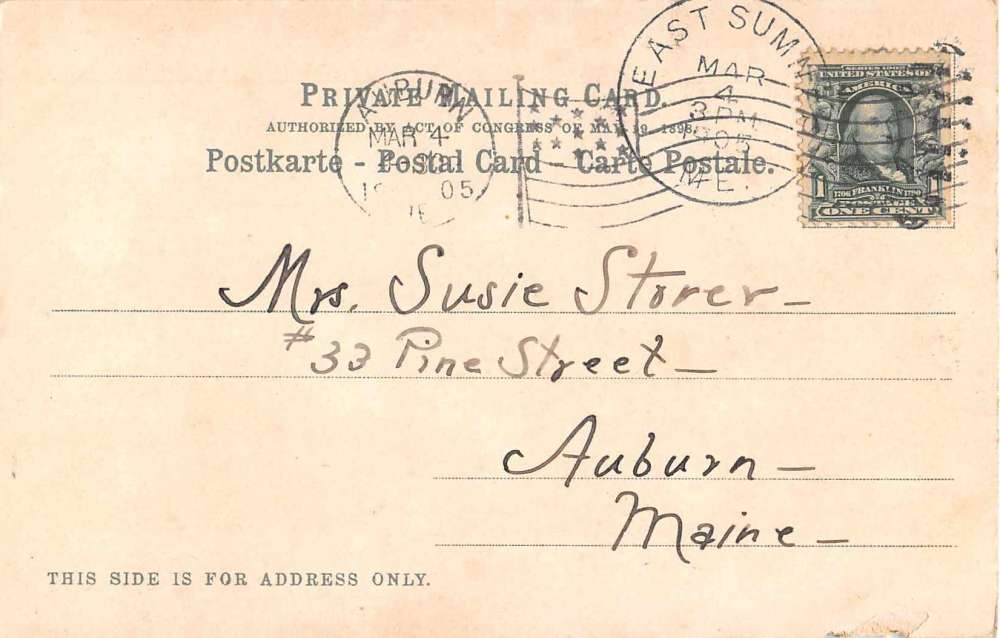 PRIVATE MAILING CARD.
AUTHORIZED BY ACT OF CONGRESS OF MAY 19, 1898.
Postkarte - Postal Card - Carte Postale.
AUBURN
MAR 4
05
EAST SUMN
MAR
4
3 PM
1905
ME.
SERIES 1902
UNITED STATES OF
AMERICA
1706 FRANKLIN 1790
POSTAGE
1 ONE CENT
Mrs. Susie Storer —
# 33 Pine Street —
Auburn —
Maine —
THIS SIDE IS FOR ADDRESS ONLY.